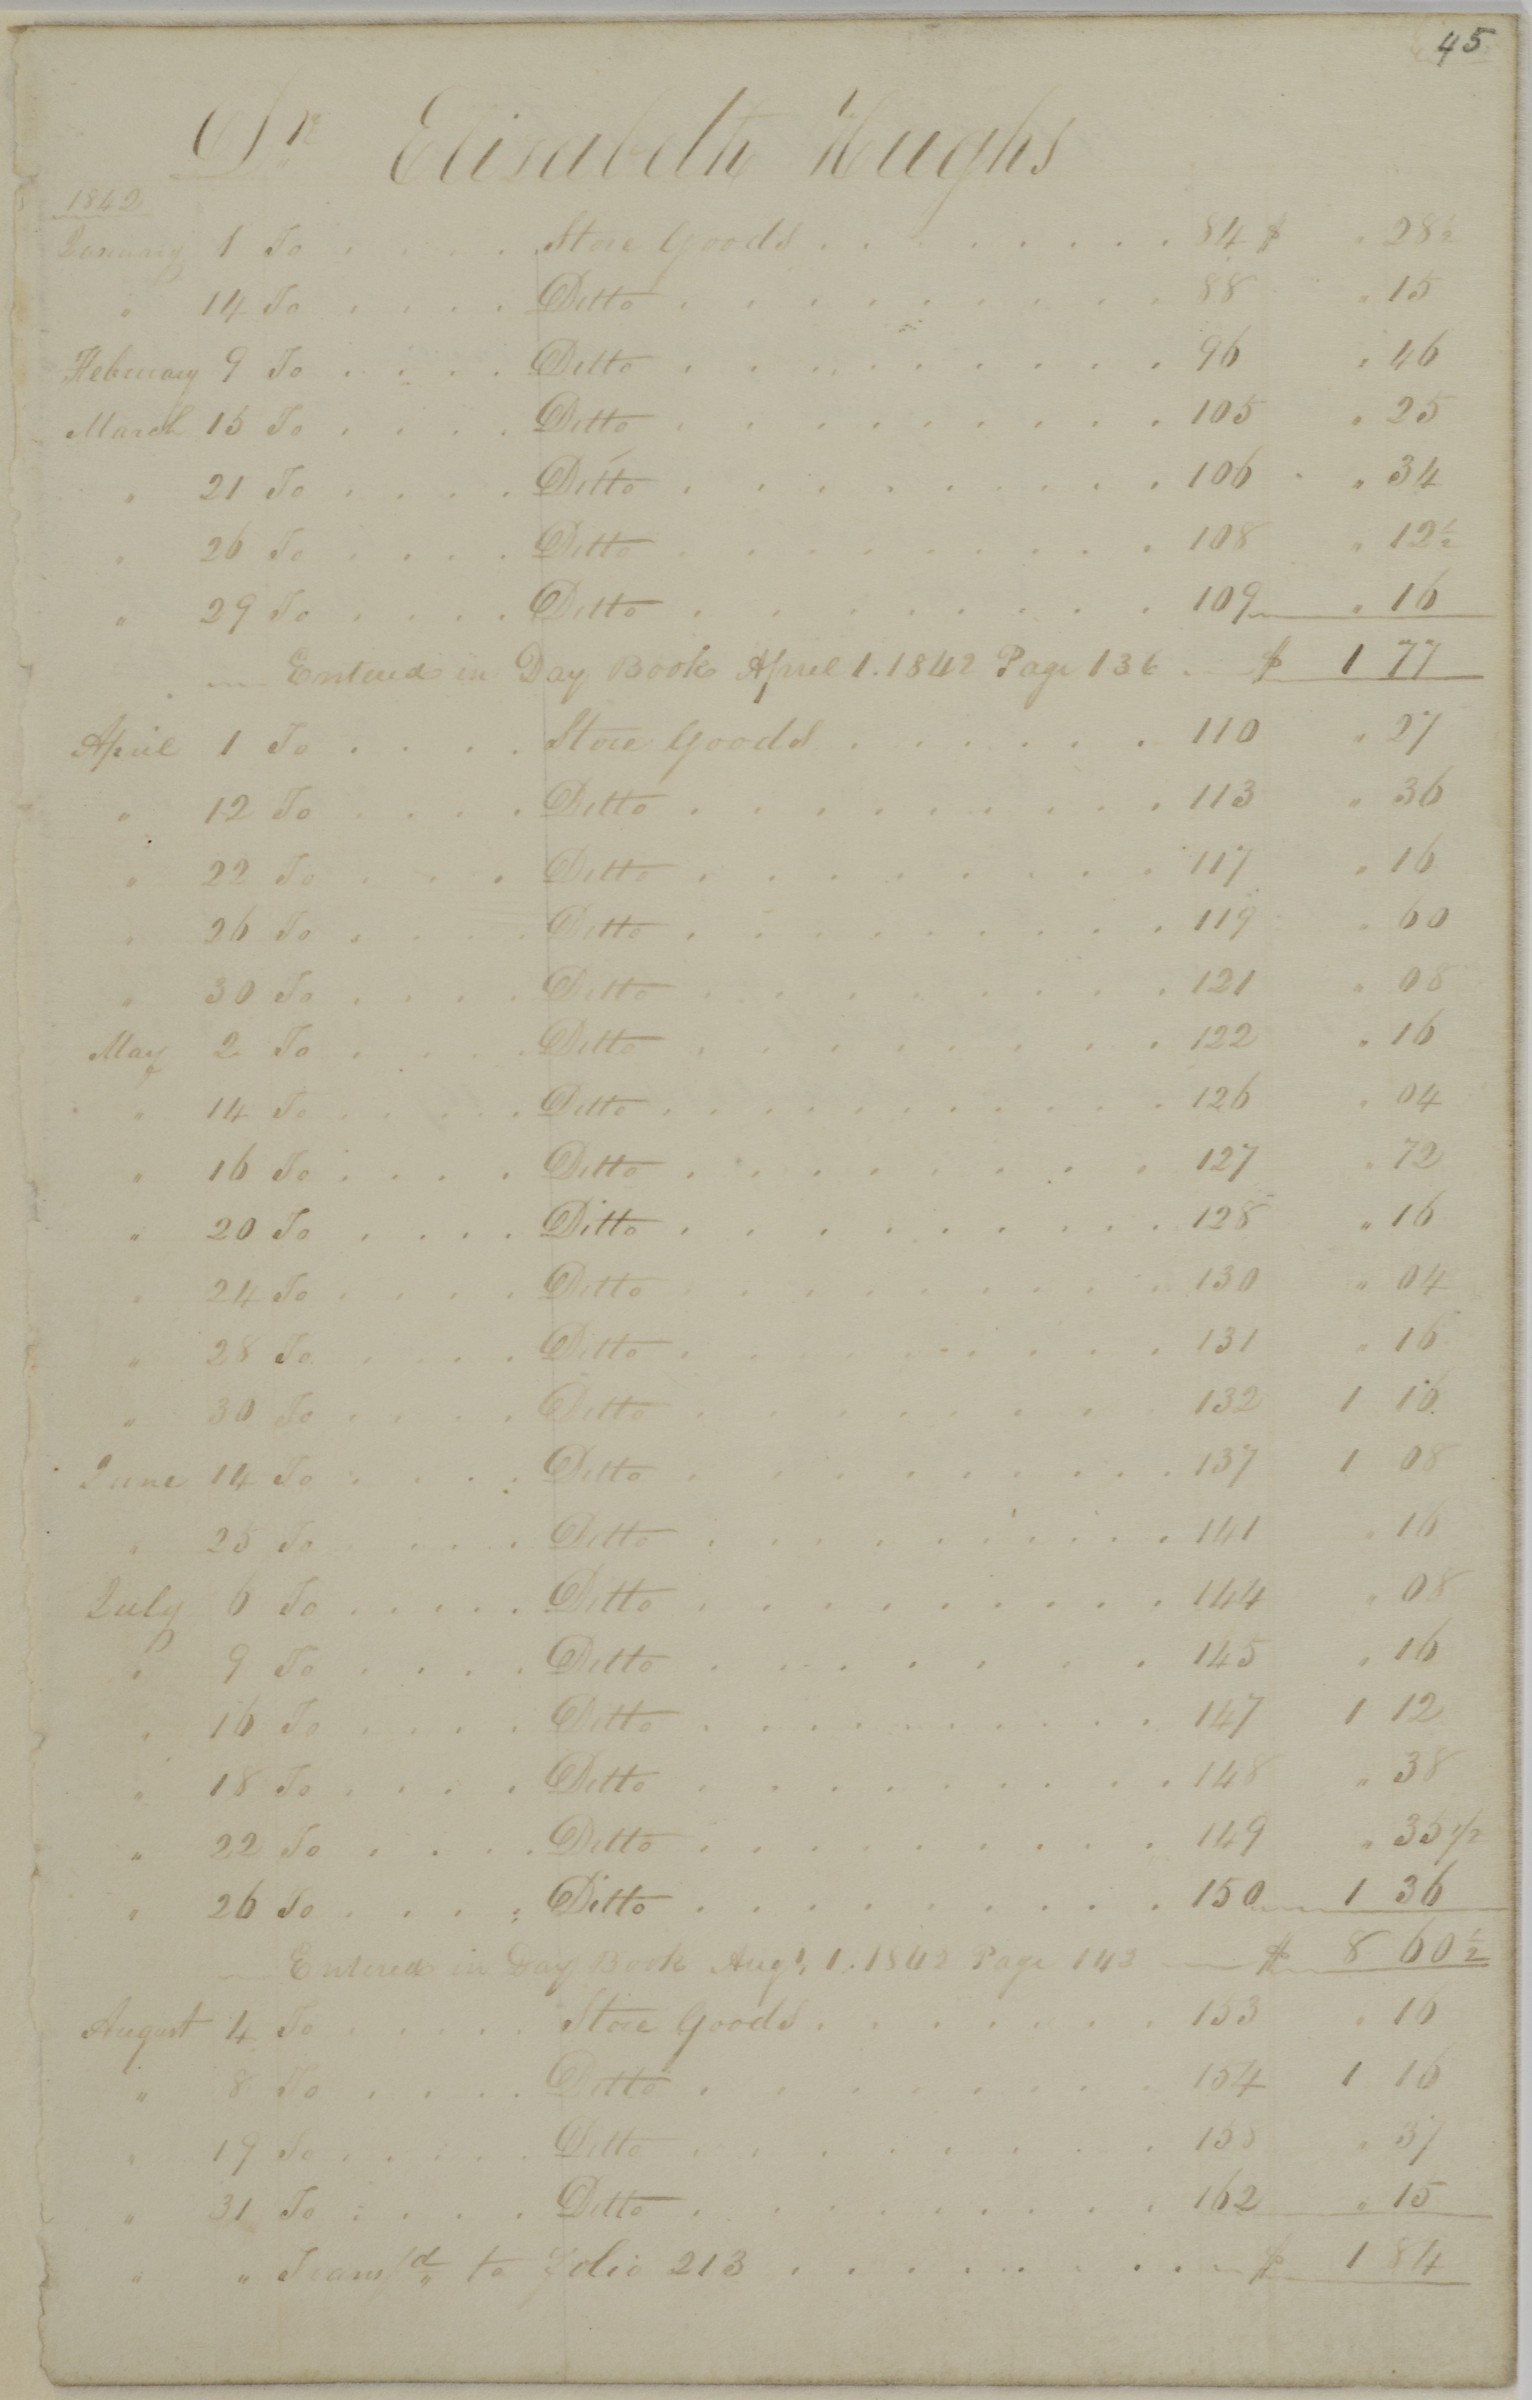 45
Dr Elisabeth Hughs
1842
January 1 To . . . . . Store Goods . . . . . . . . 84 $ " 28 1/2
" 14 To . . . . Ditto . . . . . . . . . . 88 " 15
February 9 To . . . . Ditto . . . . . . . . . . 96 " 46
March 15 To . . . . Ditto . . . . . . . . . . 105 " 25
" 21 To . . . . Ditto . . . . . . . . . . 106 " 34
" 26 To . . . . Ditto . . . . . . . . . . 108 " 12 1/2
" 29 To . . . . Ditto . . . . . . . . . 109 " 16
Entered in Day Book April 1. 1842 Page 136 $ 1 77
April 1 To . . . . Store Goods . . . . . . . 110 " 27
" 12 To . . . . Ditto . . . . . . . . . . 113 " 36
" 22 To . . . . Ditto . . . . . . . . . 117 " 16
" 26 To . . . . Ditto . . . . . . . . . . 119 " 60
" 30 To . . . . Ditto . . . . . . . . . . 121 " 08
May 2 To . . . . Ditto . . . . . . . . . 122 " 16
" 14 To . . . . Ditto . . . . . . . . . . 126 " 04
" 16 To . . . . Ditto . . . . . . . . . . 127 " 72
" 20 To . . . . Ditto . . . . . . . . . . 128 " 16
" 24 To . . . . Ditto . . . . . . . . . . 130 " 04
" 28 To . . . . Ditto . . . . . . . . . . 131 " 16
" 30 To . . . . Ditto . . . . . . . . . . 132 1 16
June 14 To . . . . Ditto . . . . . . . . . . 137 1 08
" 25 To . . . . Ditto . . . . . . . . . . 141 " 16
July 6 To . . . . . Ditto . . . . . . . . . 144 " 08
" 9 To . . . . Ditto . . . . . . . . . 145 " 16
" 16 To . . . . Ditto . . . . . . . . . . 147 1 12
" 18 To . . . . Ditto . . . . . . . . . . 148 " 38
" 22 To . . . . Ditto . . . . . . . . . . 149 " 35 1/2
" 26 To . . . . Ditto . . . . . . . . . . 150 1 36
Entered in Day Book Augt, 1. 1842 Page 143 $ 8 60 1/2
August 4 To . . . . . Store Goods . . . . . . . 153 " 16
" 8 To . . . . Ditto . . . . . . . . . . 154 1 16
" 19 To . . . . . Ditto . . . . . . . . . . " 37
" 31 To . . . . Ditto . . . . . . . . . . 162 " 15
" " Transfd to folio 213 . . . . . . . . . $ 1 84